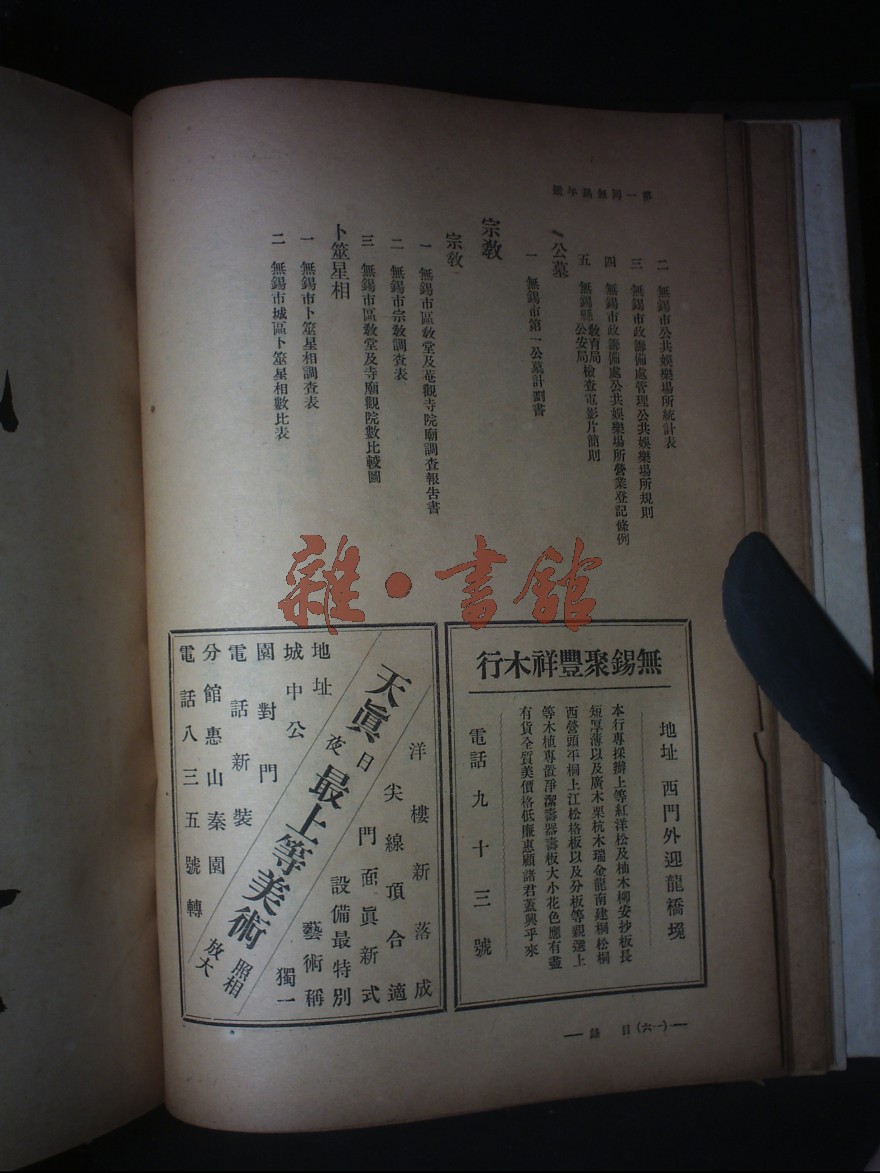 第一回無錫年鑑
二　無錫市公共娛樂場所統計表
三　無錫市政籌備處管理公共娛樂場所規則
四　無錫市政籌備處公共娛樂場所營業登記條例
五　無錫縣教育局公安局檢查電影片簡則
公墓
一　無錫市第一公墓計劃書
宗教
宗教
一　無錫市區教堂及菴觀寺院廟調查報告書
二　無錫市宗教調查表
三　無錫市區教堂及寺廟觀院數比較圖
卜筮星相
一　無錫市卜筮星相調查表
二　無錫市城區卜筮星相數比表
雜·書館
無錫聚豐祥木行
地址　西門外迎龍橋塊
本行專採辦上等紅洋松及柚木柳安抄板長
短厚薄以及廣木栗杭木瑞金龍南建桐松桐
西營頭平桐上江松格板以及分板等親選上
等木植專置淨潔壽器壽板大小花色應有盡
有貨全質美價格低廉惠顧諸君蓋興乎來
電話九十三號
洋樓新落成
尖線頂合適
門面眞新式
設備最特別
藝術稱獨一
天眞日夜最上等美術照相放大
地址
城中公
園對門
電話新裝
分館惠山秦園
電話八三五號轉
目錄（一六）